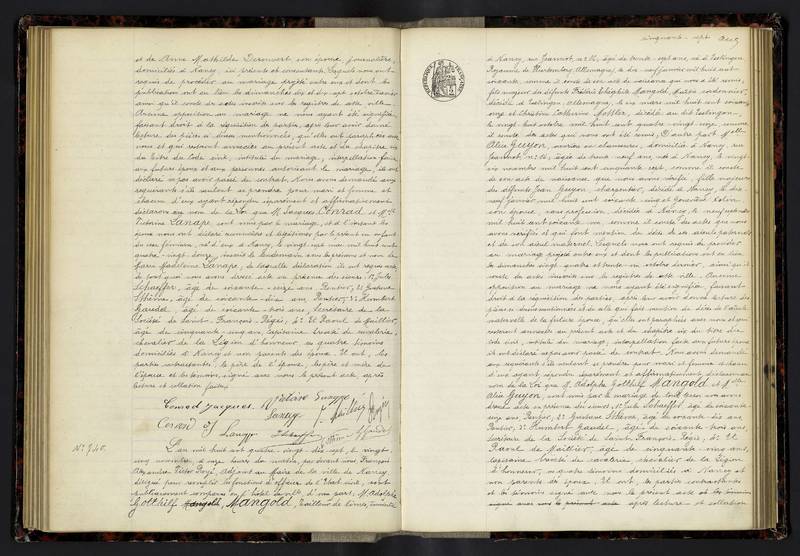 et de Anne Mathilde son épouse, journalière,
domiciliés à Nancy, ici présents et consentants. Lesquels nous ont
requis de procéder au mariage projeté entre eux et dont les
publications ont eu lieu les dimanches dix et dix sept octobre dernier
ainsi qu'il conste de actes inscrits sur les registres de cette ville.
Aucune opposition au mariage ne nous ayant été signifiée,
faisant droit à la réquisition des parties, après leur avoir donné
lecture des pièces ci dessus mentionnées, qu'elles ont paraphées avec
nous et qui restent annexées au présent acte et du chapitre six
du titre du Code civil, intitulé du mariage, interpellation faite
aux futurs époux et aux personnes autorisant le mariage, ils ont
déclaré ne pas avoir passé de contrat. Nous avons demandé aux
requérants s'ils veulent se prendre pour mari et femme et
chacun d'eux ayant répondu séparément et affirmativement
déclarons au nom de la loi que M. Jacques Conrad et Mlle
Victorine sont unis par le mariage, et à l'instant les
époux nous ont déclaré reconnaître et légitimer par le présent un enfant
du sexe féminin, né d'eux à Nancy, le vingt sept mai mil huit cent
quatre-vingt-douze, inscrit le lendemain sous les prénoms et nom de
Marie Madeleine de laquelle déclaration ils ont requis acte
de tout quoi nous avons dressé acte en présence des sieurs: 1° Jules
Schaeffer, âgé de soixante-seize ans, Rentier, 2° Gustave
âgé de soixante-dix ans, Rentier, 3° Humbert
Gaudel, âgé de soixante-trois ans, Secrétaire de la
Société de Saint-François-Régis, 4° Et Raoul de
âgé de cinquante-cinq ans, Capitaine retraité de cavalerie,
chevalier de la Légion d'honneur, les quatre témoins
domiciliés à Nancy et non parents des époux. Et ont, les
parties contractantes, le père de l'époux, les père et mère de
l'épouse et les témoins, signé avec nous le présent acte, après
lecture et collation faites.
Conrad Jacques
Conrad J
N° 740.
L'an mil huit cent quatre vingt dix sept, le vingt
cinq novembre, à onze heures du matin, par devant nous, François
Alexandre Victor Adjoint au Maire de la ville de Nancy
délégué pour remplir les fonctions d'officier de l'Etat civil, sont
publiquement comparus en l'hôtel de ville d'une part, M. Adolphe
Gotthilf Mangold, tailleur de limes, domicilié
cinquante-sept
à Nancy, rue Jeannot, n° 26, âgé de trente sept ans, né à Esslingen
Royaume de Wurtemberg, Allemagne, le dix janvier mil huit cent
soixante, comme il conste de son acte de naissance qui nous a été remis,
fils majeur des défunts Frédéric Mangold, Maître cordonnier,
décédé à Esslingen, Allemagne, le mars mil huit cent soixante
onze et Christine Catherine décédée au dit Esslingen
le vingt huit octobre mil huit cent quatre vingt onze, comme
il conste des actes qui nous ont été remis, D'autre part Mlle
Alice Guyon, ouvrière en chaussures, domiciliée à Nancy, rue
Jeannot, n° 26, âgée de trente neuf ans, née à Nancy, le vingt
six novembre mil huit cent cinquante sept, comme il conste
de son acte de naissance que nous avons vérifié, fille majeure
des défunts Jean Guyon, charpentier, décédé à Nancy, le dix
neuf janvier mil huit cent soixante cinq et
son épouse, sans profession, décédée à Nancy, le neuf
mil huit cent soixante comme il conste des actes que nous
avons vérifiés et qui font mention du décès de ses aïeuls paternels
et de son aïeul maternel. Lesquels nous ont requis de procéder
au mariage projeté entre eux et dont les publications ont eu lieu
les dimanches vingt quatre et trente un octobre dernier, ainsi qu'il
conste des actes inscrits sur les registres de cette ville. Aucune
opposition au mariage ne nous ayant été signifiée, faisant
droit à la réquisition des parties, après leur avoir donné lecture des
pièces ci dessus mentionnées et de celle qui fait mention du décès de l'aïeule
maternelle de la future épouse, qu'elles ont paraphées avec nous et qui
restent annexées au présent acte et du chapitre six du titre du
Code civil, intitulé du mariage, interpellation faite aux futurs époux
ils ont déclaré ne pas avoir passé de contrat. Nous avons demandé
aux requérants s'ils veulent se prendre pour mari et femme et chacun
d'eux ayant répondu séparément et affirmativement, déclarons au
nom de la loi que M. Adolphe Gotthilf Mangold et Mlle
Alice Guyon, sont unis par le mariage, de tout quoi nous avons
dressé acte en présence des sieurs: 1° Jules Schaeffer, âgé de soixante
seize ans, Rentier, 2° Gustave âgé de soixante dix ans,
Rentier, 3° Humbert Gaudel, âgé de soixante trois ans,
Secrétaire de la Société de Saint François Régis, 4° Et
Raoul de âgé de cinquante cinq ans,
Capitaine retraité de cavalerie, chevalier de la Légion
d'honneur, les quatre témoins domiciliés à Nancy et
non parents des époux. Et ont, les parties contractantes
et les témoins signé avec nous le présent acte
après lecture et collation